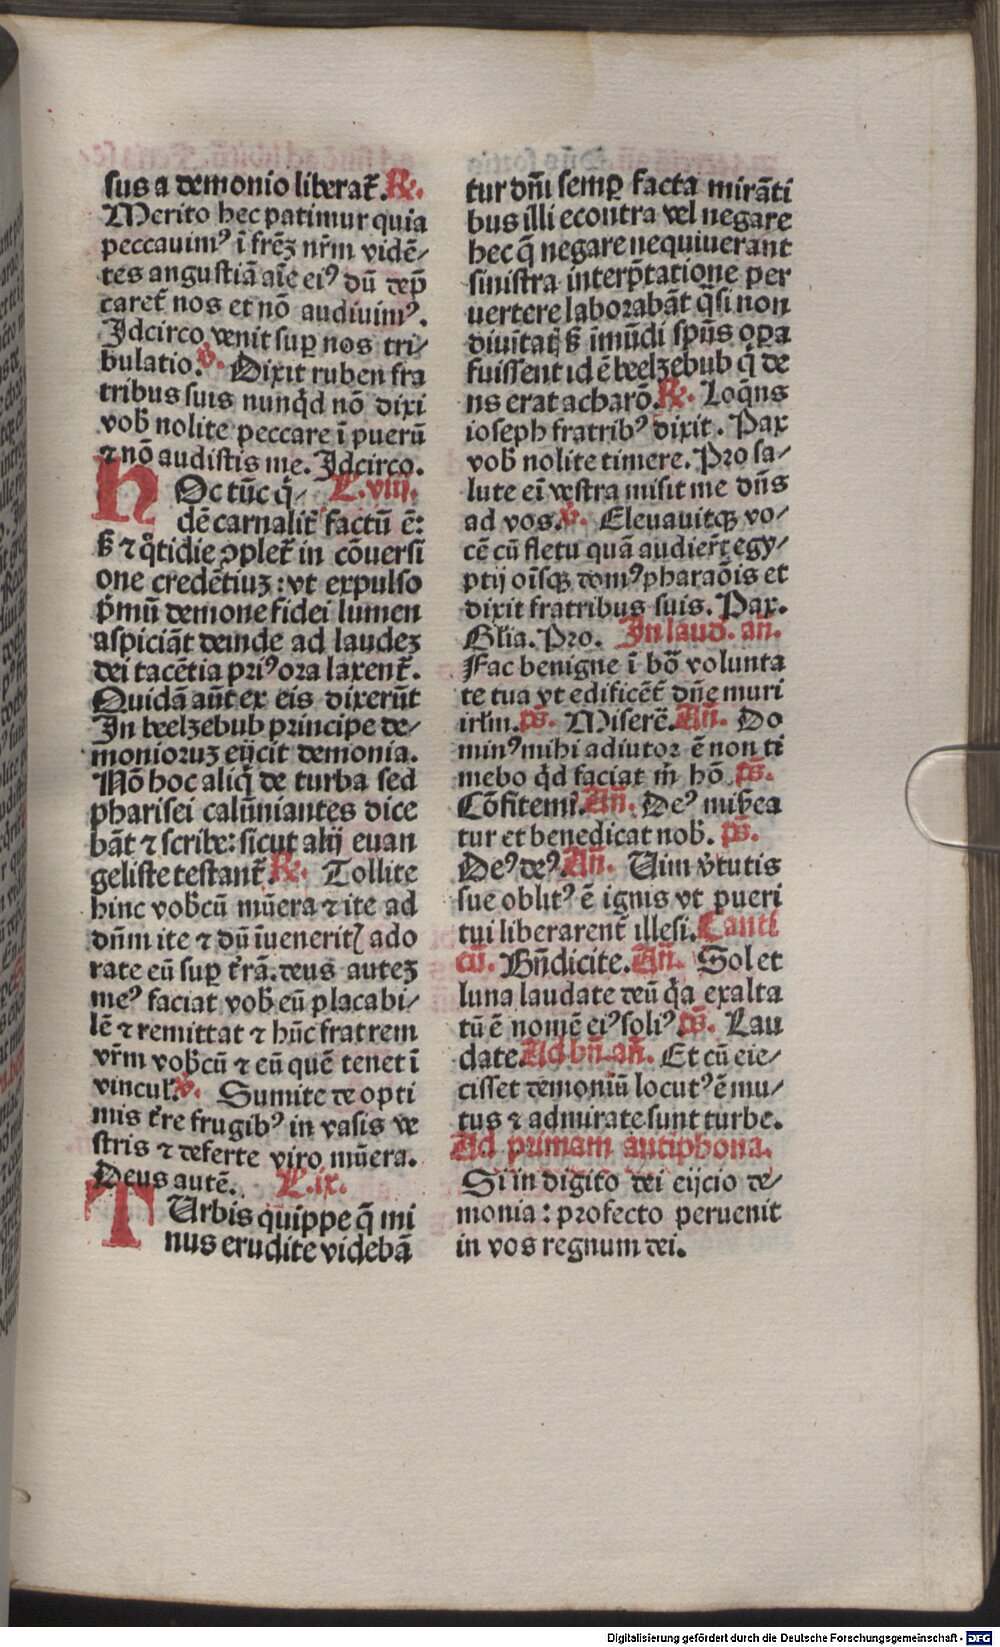 sus a demonio liberat̃. ℟.
Merito hec patimur quia
peccauimꝰ ĩ frẽꝫ nr̃m vidẽ-
tes angustiã aĩe eiꝰ dũ dep̃
caret̃ nos et nõ audiuimꝰ.
Idcirco venit suꝑ nos tri-
bulatio. ℣. Dixit ruben fra
tribus suis nunqͥd nõ dixi
vob̃ nolite peccare ĩ puerũ
⁊ nõ audistis me. Idcirco.
HOc tũc qͥ- L. viij.
dẽ carnalit̃ factũ ẽ:
sꝫ ⁊ qͦtidie ꝯplet̃ in cõuersi
one credẽtiuꝫ: vt expulso
pͥmũ demone fidei lumen
aspiciãt deinde ad laudeꝫ
dei tacẽtia priꝰ ora laxent̃.
Quidã aũt ex eis dixerũt
In beelzebub principe de-
monioruꝫ eijcit demonia.
Nõ hoc aliq̃ de turba sed
pharisei calũniantes dice
bãt ⁊ scribe: sicut alij euan
geliste testant̃. ℟. Tollite
hinc vob̃cũ mũera ⁊ ite ad
dñm ite ⁊ dũ ĩueneritꝭ ado
rate eũ suꝑ t̃rã. deus auteꝫ
meꝰ faciat vob̃ eũ placabi-
lẽ ⁊ remittat ⁊ hũc fratrem
vr̃m vob̃cũ ⁊ eũ quẽ tenet ĩ
vincul̃. ℣. Sumite de opti
mis t̃re frugibꝰ in vasis ve
stris ⁊ deferte viro mũera.
Deus autẽ. L. ix.
TUrbis quippe q̃ mi
nus erudite videbã
tur dñi semꝑ facta mirãti
bus illi econtra vel negare
hec q̃ negare nequiuerant
sinistra interp̃tatione per
uertere laborabãt q̃si non
diuĩtatꝭ sꝫ ĩmũdi spũs oꝑa
fuissent id ẽ beelzebub qͥ de
ns erat acharõ. ℟. Loq̃ns
ioseph fratribꝰ dixit. Pax
vob̃ nolite timere. Pro sa-
lute eĩ vestra misit me dñs
ad vos. ℣. Eleuauitqꝫ vo-
cẽ cũ fletu quã audiert̃ egy-
ptij oĩsqꝫ domꝰ pharaõis et
dixit fratribus suis. Pax.
Glĩa. Pro. In laud. añ.
Fac benigne ĩ bõ volunta
te tua vt edificẽt̃ dñe muri
irlm̃. p̃s. Miserẽ. Añ. Do
minꝰ mihi adiutor ẽ non ti
mebo qͥd faciat m̃ hõ. p̃s.
Cõfitemĩ. Añ. Deꝰ mis̃ea
tur et benedicat nob̃. p̃s.
Deꝰ deꝰ. Añ. Uim v̓tutis
sue oblitꝰ ẽ ignis vt pueri
tui liberarent̃ illesi. Canti
cũ. Bñdicite. Añ. Sol et
luna laudate deũ qͥa exalta
tũ ẽ nomẽ eiꝰ soliꝰ. p̃s. Lau
date. Ad bñ. añ. Et cũ eie-
cisset demoniũ locutꝰ ẽ mu-
tus ⁊ admirate sunt turbe.
Ad primam antiphona.
Si in digito dei eijcio de-
monia: profecto peruenit
in vos regnum dei.
Digitalisierung gefördert durch die Deutsche Forschungsgemeinschaft - DFG